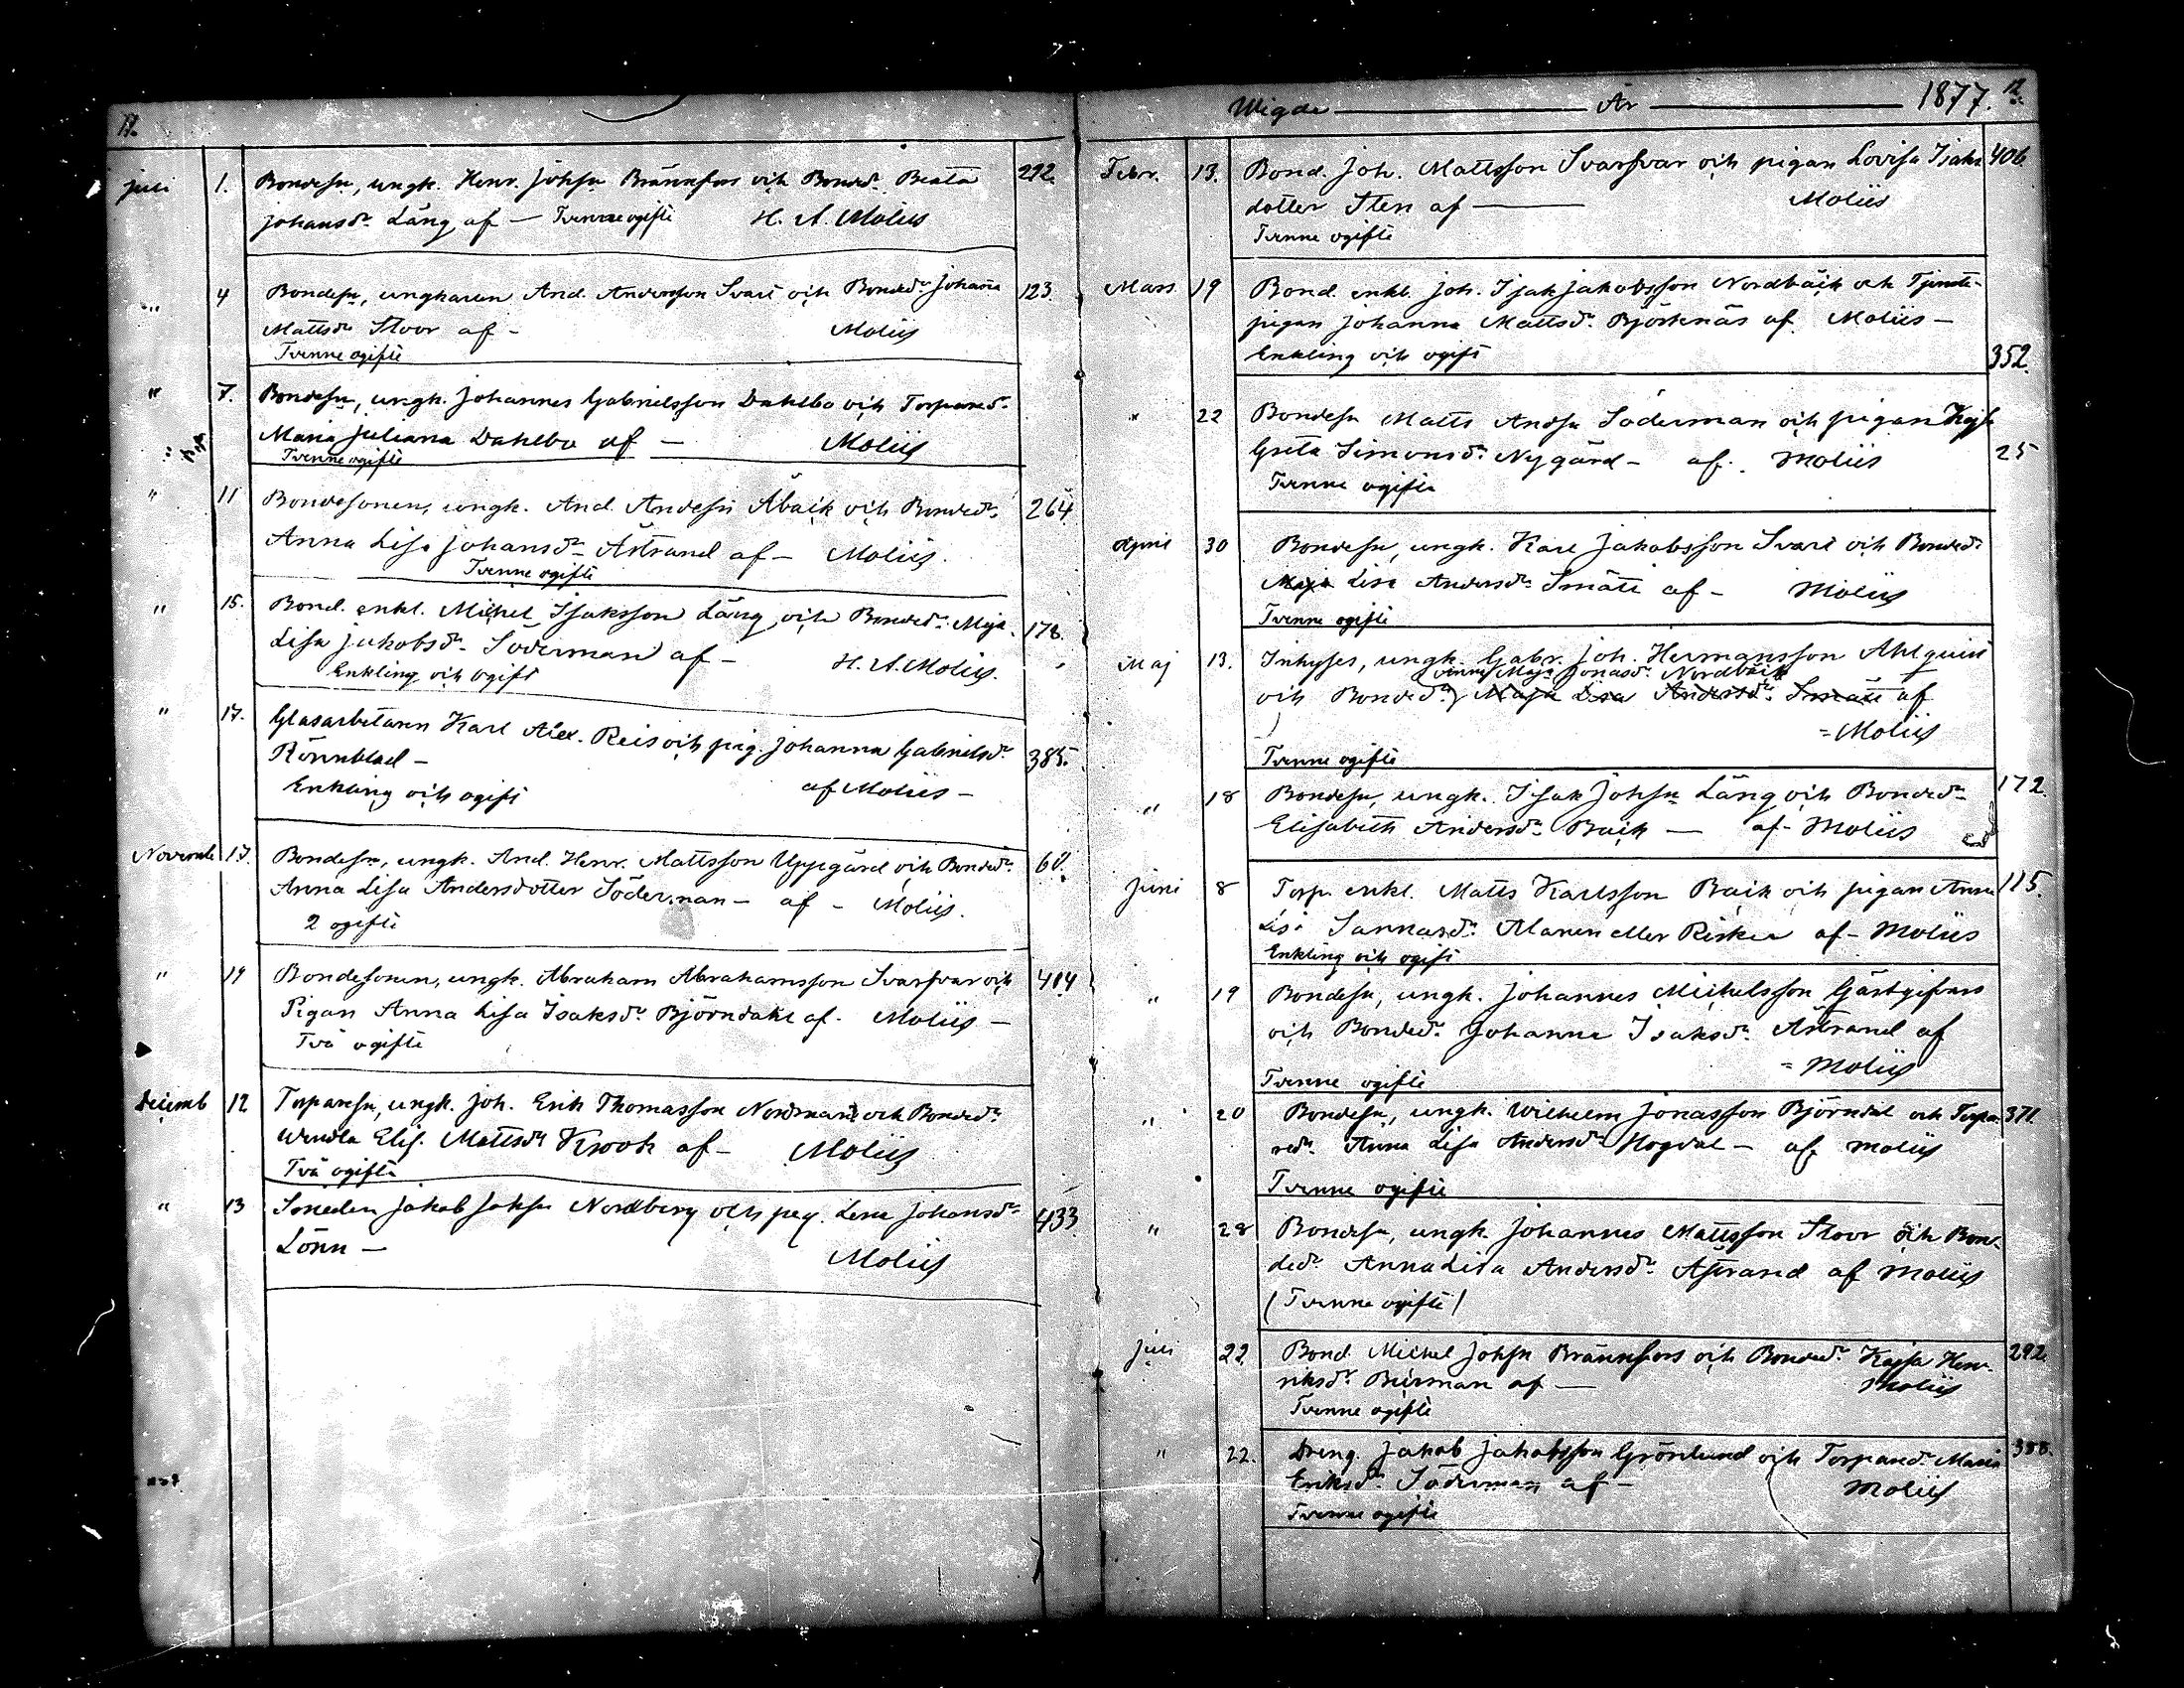 Juli 1. Bondesn, ungk. Henr. Johsn Brännfors och Bonded. Beata 292.
Johansdr Läng af — Tvenne ogifte H. A. Moliis
" 4 Bondesn, ungkarlen And. Andersson Svart och Bonded. Johanna 123.
Mattsdr Stoor af - Moliis
Tvenne ogifte
" 7. Bondesn, ungk. Johannes Gabrielsson Dahlbo och Torpared.
Maria Juliana Dahlbo af — Moliis
Tvenne ogifte
" 11 Bondesonen, ungk. And. Andersn Åbäck och Bonded. 264.
Anna Lisa Johansdr Åstrand af — Moliis.
Tvenne ogifte
" 15. Bond. enkl. Michel Isaksson Läng och Bonded. Maja 178.
Lisa Jakobsdr Söderman af — H. A. Moliis.
Enkling och ogift
" 17. Glasarbetaren Karl Alex. Reis och pig. Johanna Gabrielsdr 385.
Rönnblad —
Enkling och ogift af Moliis —
Novemb 17. Bondesn, ungk. And. Henr. Mattsson Uppgård och Bonded. 60.
Anna Lisa Andersdotter Söderman — af - Moliis.
2 ogifte
" 19 Bondesonen, ungk. Abraham Abrahamsson Svarfvar och 404
Pigan Anna Lisa Isaksdr Björndahl af. Moliis —
Två ogifte
Decemb 12 Torparesn, ungk. Joh. Erik Thomasson Nordman och Bonded.
Wendla Elis. Mattsdr Krook af — Moliis
Två ogifte
" 13 Smeden Jakob Johsn Nordberg och pig. Lena Johansdr 433.
Lönn — Moliis
Wigde — År — 1877. 12
Febr. 13. Bond. Joh. Mattsson Svarfvar och pigan Lovisa Isaks 406
dotter Sten af — Moliis
Tvenne ogifte
Mars 19 Bond. enkl. Joh. Isak Jakobsson Nordbäck och Tjenste-
pigan Johanna Mattsdr Björknäs af Moliis —
Enkling och ogift 352.
" 22 Bondesn Matts Andsn Söderman och pigan Kajsa
Greta Simonsdr Nygård — af. Moliis 25
Tvenne ogifte
April 30 Bondesn, ungk. Karl Jakobsson Svart och Bonded.
Maja Lisa Andersdr Smått af — Moliis
Tvenne ogifte
Maj 13. Inhyses, ungk. Gabr. Joh. Hermansson Ahlqvist
Anna Maja Jonasdr Nordbäck
och Bonded. Maja Lisa Andersdr Smått af
= Moliis
Tvenne ogifte
" 18 Bondesn, ungk. Isak Johsn Läng och Bonded. 172.
Elisabeth Andersdr Bäck — af — Moliis
Juni 8 Torp. enkl. Matts Karlsson Bäck och pigan Anna 115.
Lisa Sannasdr Alanen eller Riska af — Moliis
Enkling och ogift
" 19 Bondesn, ungk. Johannes Michelsson Gästgifvars
och Bonded. Johanna Isaksdr Åstrand af
= Moliis
Tvenne ogifte
" 20 Bondesn, ungk. Wilhelm Jonasson Björndal och Torpa- 371.
red. Anna Lisa Andersdr Hogdal — af Moliis
Tvenne ogifte
" 28 Bondesn, ungk. Johannes Mattsson Stoor och Bon-
ded. Anna Lisa Andersdr Åstrand af Moliis
(Tvenne ogifte)
Juli 22 Bond. Michel Johsn Brännfors och Bonded. Kajsa Hen- 292
riksdr Burman af — Moliis
Tvenne ogifte
" 22. Dreng. Jakob Jakobsson Grönlund och Torpared. Maria 388.
Eriksdr Söderman af — Moliis
Tvenne ogifte